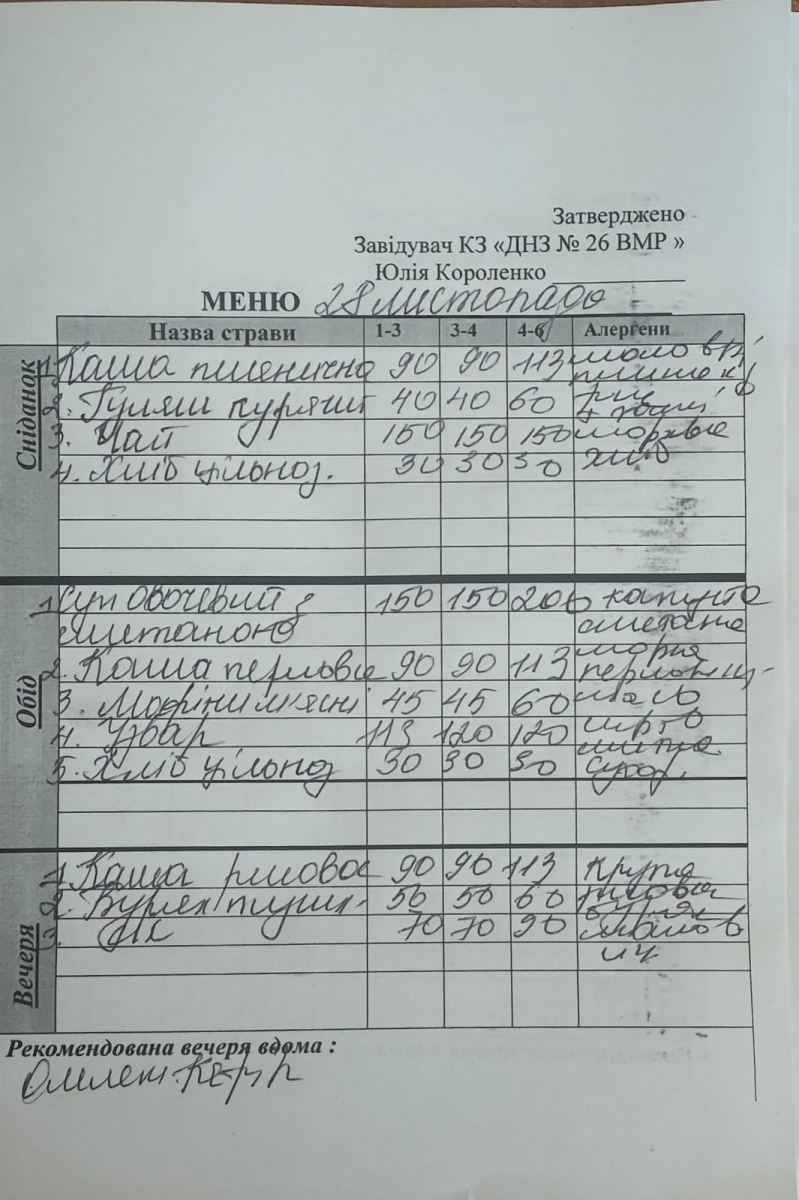 Затверджено
Завідувач КЗ «ДНЗ № 26 ВМР »
Юлія Короленко
МЕНЮ 28 листопада
Назва страви 1-3 3-4 4-6 Алергени
Сніданок
1. Каша пшенична 90 90 113
2. Гуляш курячий 40 40 60
3. Чай 150 150 150 морква
4. Хліб цільноз. 30 30 30 хліб
Обід
1. Суп овочевий з 150 150 200 капуста
сметаною сметана
2. Каша перлова 90 90 113 перлов
3. Мафіни м'ясні 45 45 60
4. Узвар 113 120 120
5. Хліб цільноз 30 30 30 сухоф.
Вечеря
1. Каша рисова 90 90 113 крупа
2. Буряк тушк. 50 50 60 рисова
3. 70 70 90
Рекомендована вечеря вдома :
Омлет.